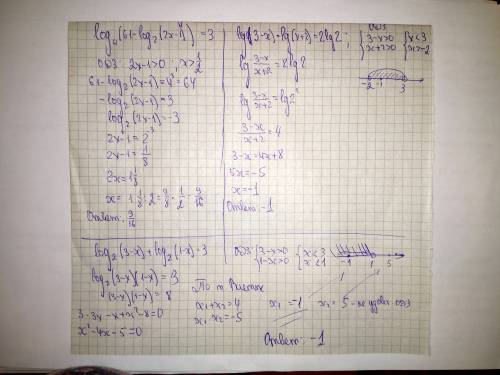 log₄(61-log₂(2x-1))=3
ОДЗ 2x-1>0 ; x>1/2
61-log₂(2x-1)=4³=64
-log₂(2x-1)=3
log₂(2x-1)=-3
2x-1=2⁻³
2x-1=1/8
2x=1 1/8
x=1 1/8:2=9/8·1/2=9/16
Ответ: 9/16
lg(3-x)-lg(x+2)=2lg2; ОДЗ {3-x>0 x+2>0 {x<3 x>-2
-2 -1 3
lg (3-x)/(x+2)=2lg2
lg (3-x)/(x+2)=lg2²
(3-x)/(x+2)=4
3-x=4x+8
5x=-5
x=-1
Ответ -1
log₂(3-x)+log₂(1-x)=3
log₂(3-x)(1-x)=3
(3-x)(1-x)=8
3-3x-x+x²-8=0
x²-4x-5=0
ОДЗ {3-x>0 1-x>0 {x<3 x<1
-1 1 5
По т. Виета
x₁+x₂=4
x₁·x₂=-5
x₁=-1 x₂=5 - не удовл. ОДЗ
Ответ: -1